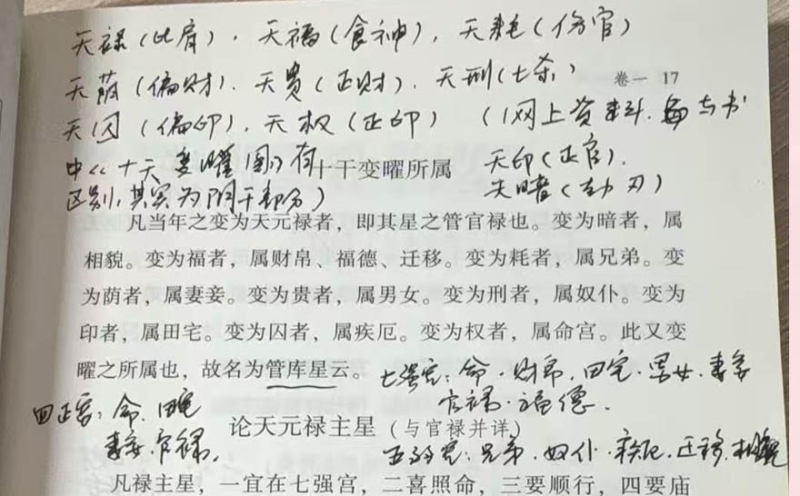 天禄(比肩)、天福(食神),天耗(伤官)
天荫(偏财)、天贵(正财)、天刑(七杀)
卷一 17
天囚(偏印),天权(正印)(网上资料,与书
中《十天变曜图》有
区别,其实为阴干部分)
天印(正官)、
天暗(劫刃)
十干变曜所属
凡当年之变为天元禄者,即其星之管官禄也。变为暗者,属
相貌。变为福者,属财帛、福德、迁移。变为耗者,属兄弟。变
为荫者,属妻妾。变为贵者,属男女。变为刑者,属奴仆。变为
印者,属田宅。变为囚者,属疾厄。变为权者,属命宫。此又变
曜之所属也,故名为管库星云。
七强宫:命、财帛、田宅、男女、妻妾
官禄、福德。
四正宫:命、田宅
妻妾、官禄。
论天元禄主星(与官禄并详)
五弱宫:兄弟、奴仆、疾厄、迁移、相貌
凡禄主星,一宜在七强宫,二喜照命,三要顺行,四要庙